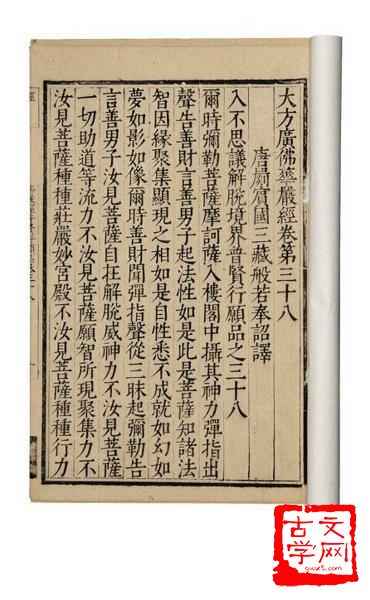 大方廣佛華嚴經卷第三十八
唐罽賓國三藏般若奉詔譯
入不思議解脫境界普賢行願品之三十八
爾時彌勒菩薩摩訶薩入樓閣中攝其神力彈指出
聲告善財言善男子起法性如是此是菩薩知諸法
智因緣聚集顯現之相如是自性悉不成就如幻如
夢如影如像爾時善財聞彈指聲從三昧起彌勒告
言善男子汝見菩薩自在解脫威神力不汝見菩薩
一切助道等流力不汝見菩薩願智所現聚集力不
汝見菩薩種種莊嚴妙宮殿不汝見菩薩種種行力
古文
学网
gwx5.com